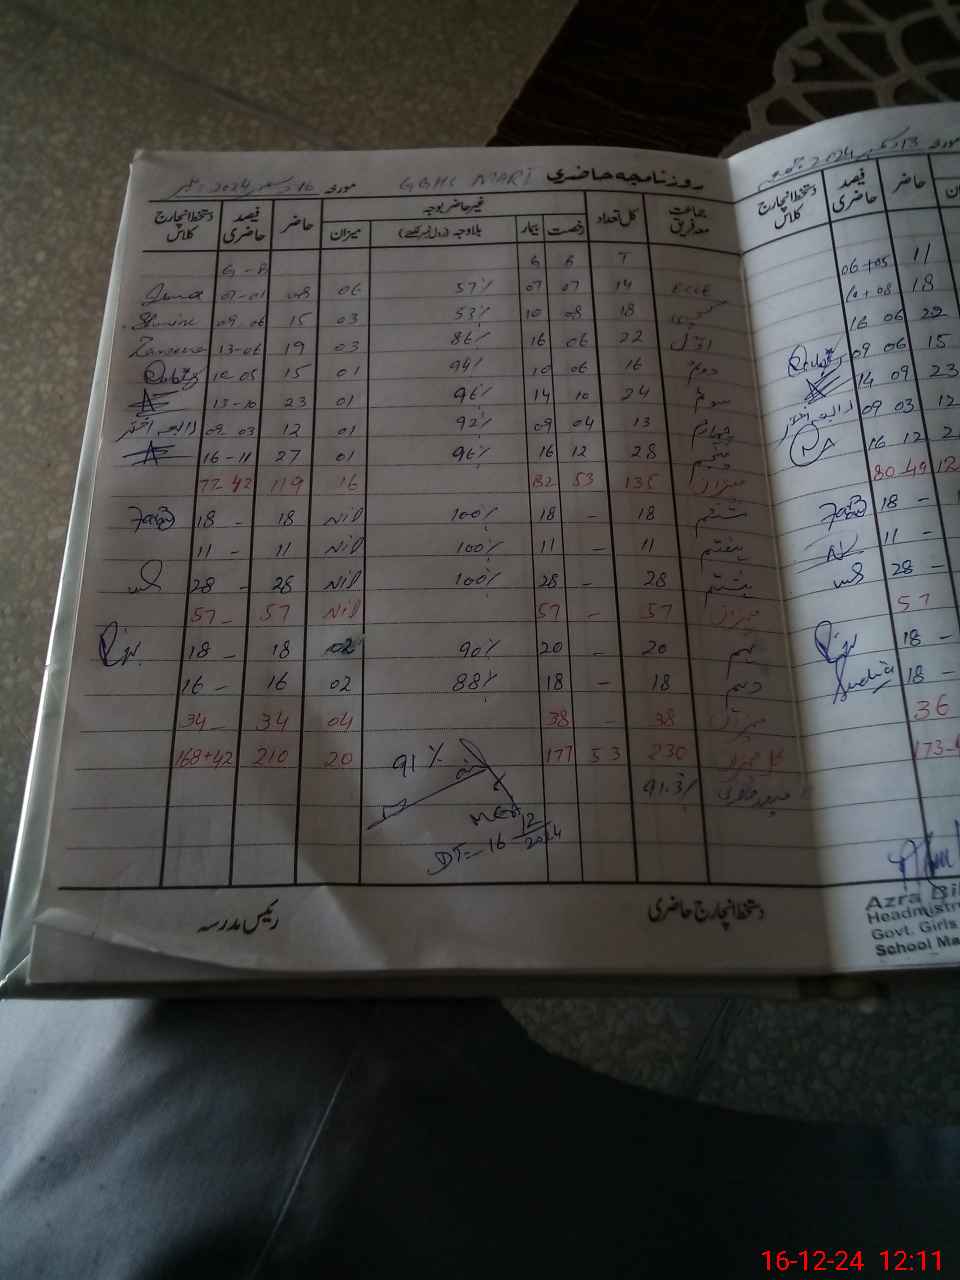 روزنامچہ حاضری GGHS MARI مورخہ 16 دسمبر 2024ء
جماعت معہ فریق کل تعداد غیر حاضر بوجہ حاضر فیصد حاضری دستخط انچارج کلاس
رخصت بیمار بلاوجہ (رول نمبر لکھیے) میزان
T B G G - B
ECCE 14 07 07 57% 06 08 07-01
کچی 18 08 10 53% 03 15 09 06
اول 22 06 16 86% 03 19 13-06
دوئم 16 06 10 94% 01 15 10 05
سوئم 24 10 14 96% 01 23 13-10
چہارم 13 04 09 92% 01 12 09 03 رابعہ اختر
پنجم 28 12 16 96% 01 27 16-11
میزان 135 53 82 16 119 77 42
ششم 18 - 18 100% Nil 18 18 -
ہفتم 11 - 11 100% Nil 11 11 -
ہشتم 28 - 28 100% Nil 28 28 -
میزان 57 - 57 Nil 57 57 -
نہم 20 - 20 90% 02 18 18 -
دہم 18 - 18 88% 02 16 16 -
میزان 38 - 38 04 34 34 -
کل میزان 230 53 177 91% 20 210 168+42
فیصد حاضری 91.3%
DT=- 16 12/2024
دستخط انچارج حاضری رئیس مدرسہ
مورخہ 13 دسمبر 2024
حاضر فیصد حاضری دستخط انچارج کلاس
11 06+05
18 10+08
22 06 16
15 06 09
23 09 14
12 03 09 رابعہ اختر
16 12
80-49
18 -
11 -
28 -
57
18 -
18 - Sadia
36
173-
Azra Bi
Headmistre
Govt. Girls
School Ma
16-12-24 12:11